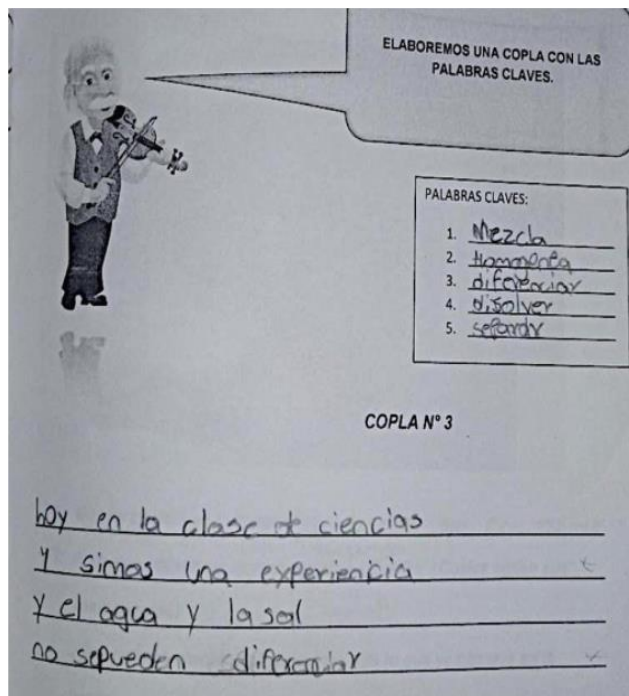 ELABOREMOS UNA COPLA CON LAS
PALABRAS CLAVES.
PALABRAS CLAVES:
1. Mezcla
2. Hommonea
3. diferenciar
4. disolver
5. separar
COPLA N° 3
hoy en la clase de ciencias
y simos una experiencia
y el agua y la sal
no sepueden diferenciar